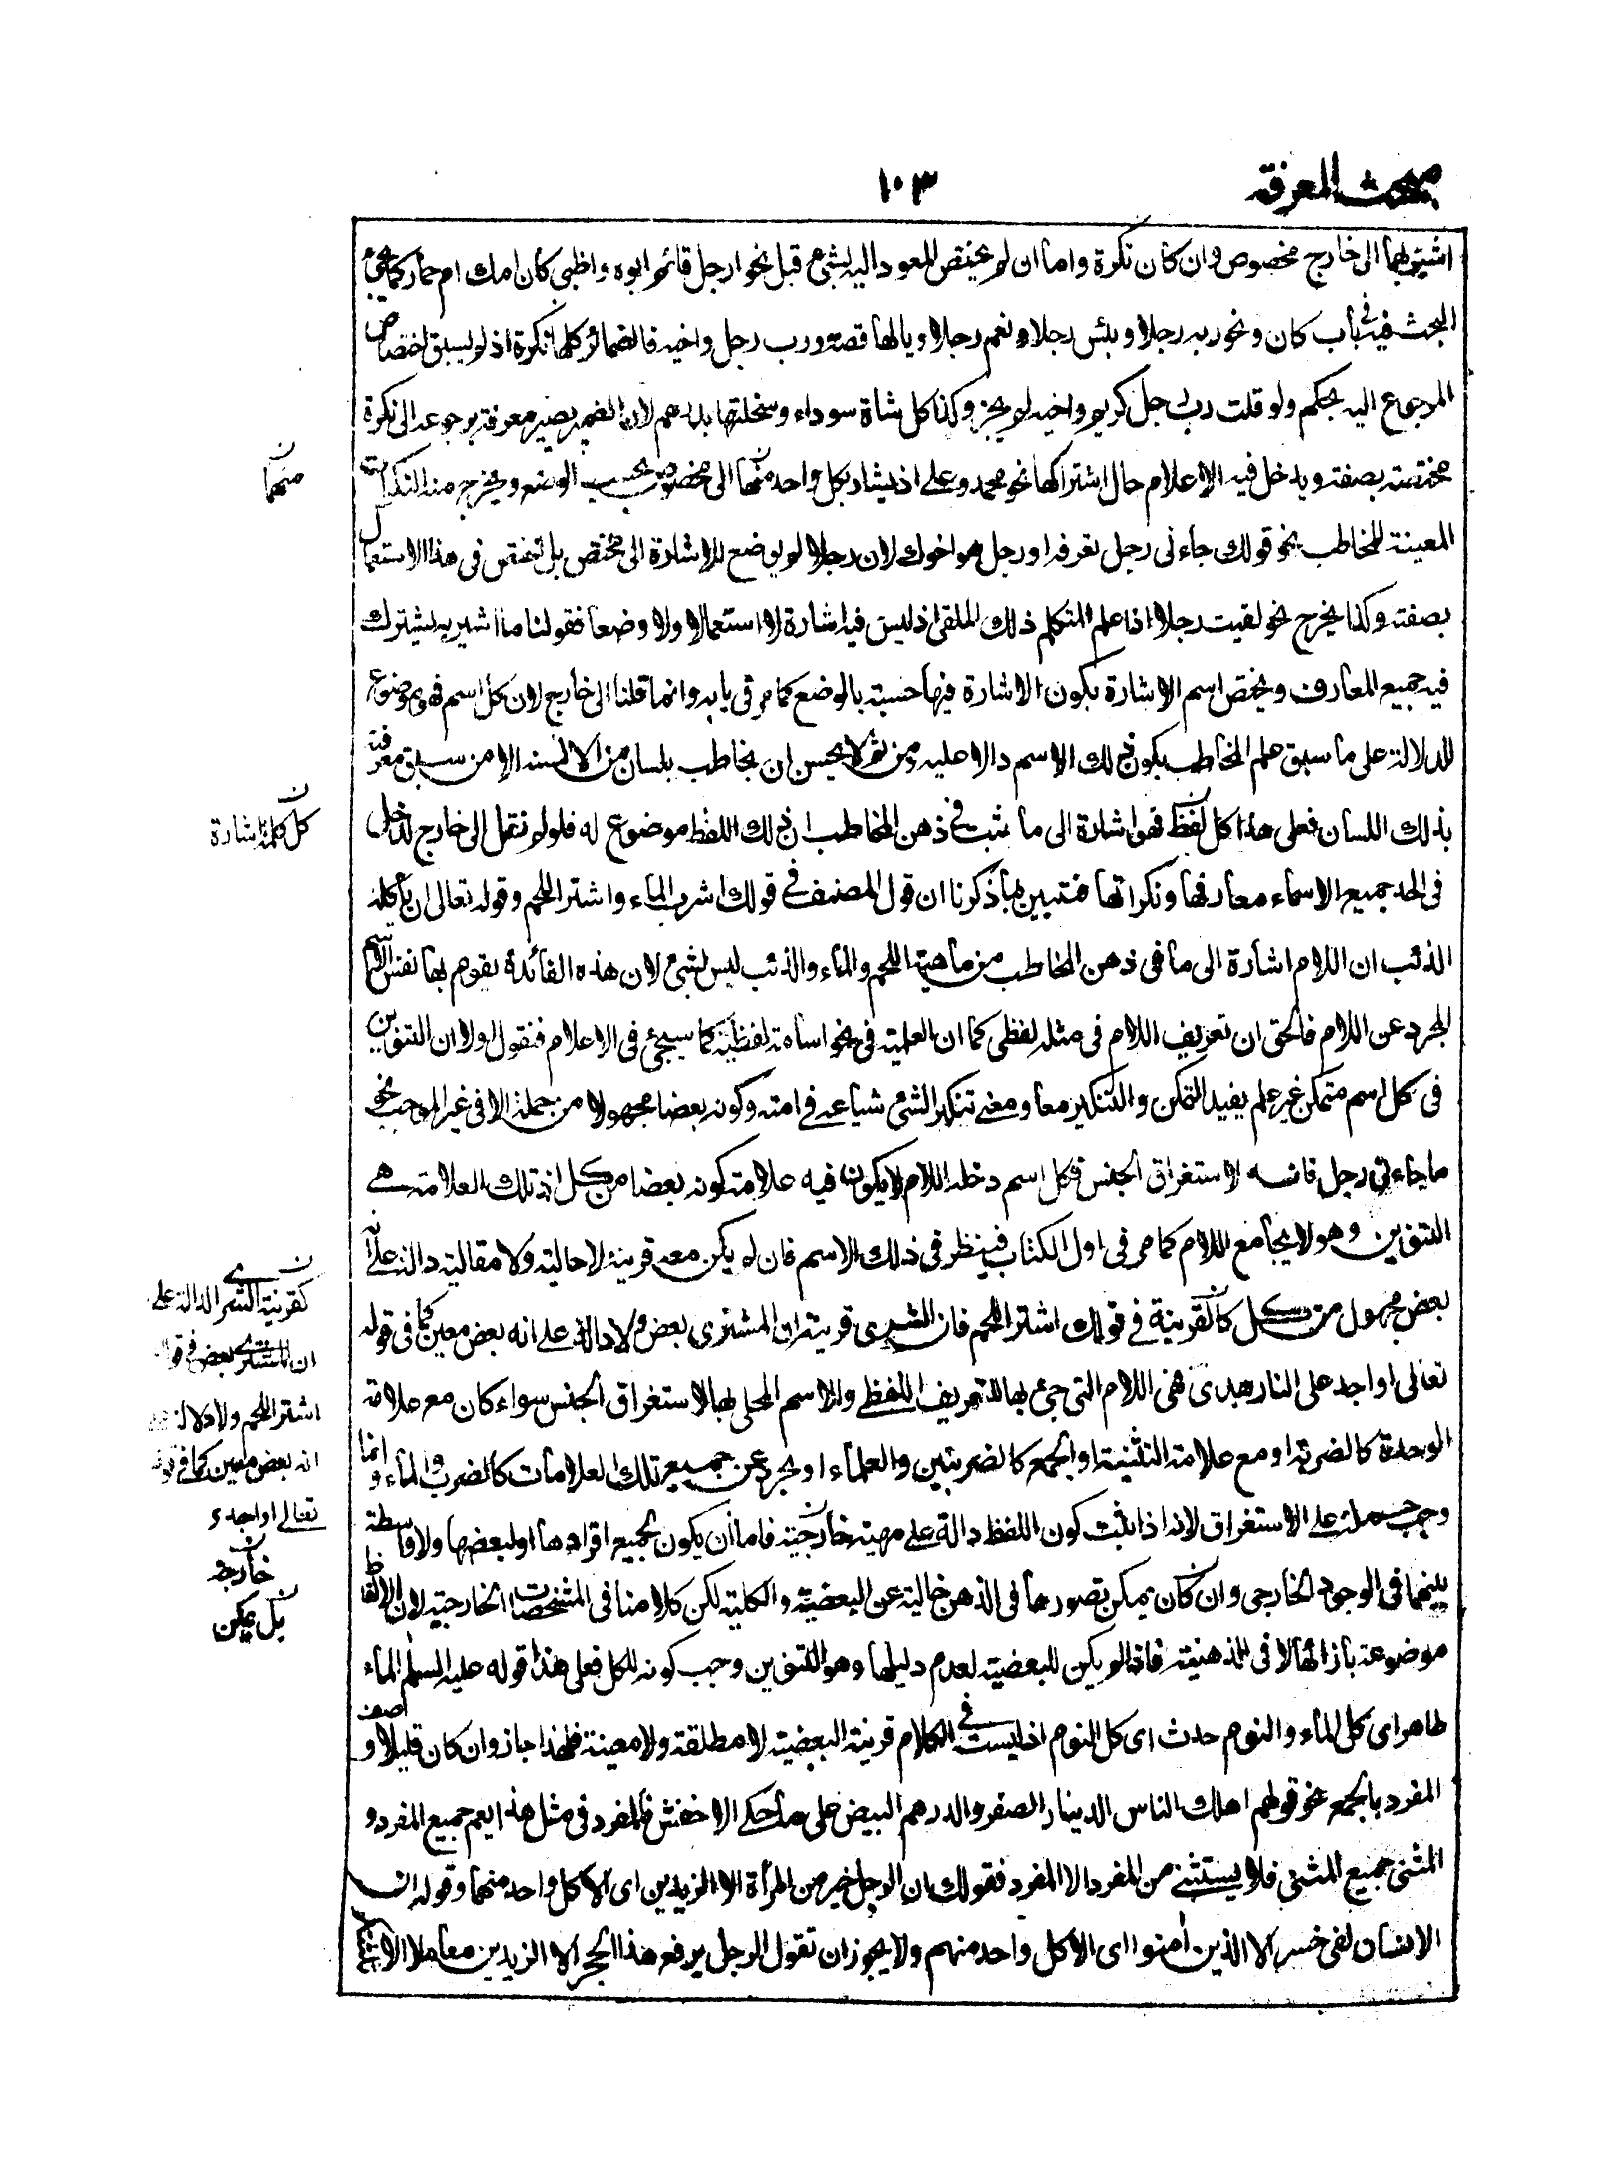 مبحث المعرفة
١٠٣
اشير بها الى خارج مخصوص وان كان نكرة واما ان لم يختص المعود اليه بشئ قبل نحو ارجل قائم ابوه واظبى كان امك ام حمار كما يجئ
البحث فيه فى باب كان ونحو ربه رجلا وبئس رجلا ونعم رجلا ويا لها قصة ورب رجل واخيه فالضمائر كلها نكرة اذ لم يسبق اختصاص
المرجوع اليه بحكم ولو قلت رب رجل كريم واخيه لم يجز وكذا كل شاة سوداء وسخلتها بدرهم لان الضمير يصير معرفة برجوعه الى نكرة
مختصة بصفة ويدخل فيه الاعلام حال اشتراكها نحو محمد وعلى اذ يشار بكل واحد منها الى مخصوص بحسب الوضع ويخرج منه النكرات
المعينة للمخاطب نحو قولك جاءنى رجل تعرفه او رجل هو اخوك لان رجلا لم يوضع للاشارة الى مختص بل اختص فى هذا الاستعمال
بصفته وكذا يخرج نحو لقيت رجلا اذا علم المتكلم ذلك الملقى اذ ليس فيه اشارة لا استعمالا ولا وضعا فقولنا ما اشير به يشترك
فيه جميع المعارف ويختص اسم الاشارة بكون الاشارة فيها حسية بالوضع كما مر فى بابه وانما قلنا الى خارج لان كل اسم فهو موضوع
للدلالة على ما سبق علم المخاطب بكون ذلك الاسم دالا عليه ومن ثم لا يحسن ان يخاطب بلسان من الالسنة الا من سبق معرفته
بذلك اللسان فعلى هذا كل لفظ فهو اشارة الى ما ثبت فى ذهن المخاطب ان ذلك اللفظ موضوع له فلو لم نقل الى خارج لدخل
فى الحد جميع الاسماء معارفها ونكراتها فتبين بما ذكرنا ان قول المصنف فى قولك اشرب الماء واشتر اللحم وقوله تعالى ان يأكله
الذئب ان اللام اشارة الى ما فى ذهن المخاطب من ماهية اللحم والماء والذئب ليس بشئ لان هذه الفائدة يقوم بها نفس الاسم
المجرد عن اللام فالحق ان تعريف اللام فى مثله لفظى كما ان العلمية فى نحو اسامة لفظية كما سيجئ فى الاعلام فنقول ولا ان التنوين
فى كل اسم متمكن غير علم يفيد التمكن والتنكير معا ومعنى تنكير الشئ شياعه فى امته وكونه بعضا مجهولا من جملة الا فى غير الموجب نحو
ما جاءنى رجل فانه لاستغراق الجنس فكل اسم دخله اللام لا يكون فيه علامة كونه بعضا من كل اذ تلك العلامة هى
التنوين وهو لا يجامع اللام كما مر فى اول الكتاب فينظر فى ذلك الاسم فان لم يكن معه قرينة لا حالية ولا مقالية دالة على انه
بعض مجهول من كل كالقرينة فى قولك اشتر اللحم فان الشرى قرينة ان المشترى بعض ولا دالة على انه بعض معين كما فى قوله
تعالى او اجد على النار هدى فهى اللام التى جئ بها للتعريف اللفظى والاسم المحلى بها لاستغراق الجنس سواء كان مع علامة
الوحدة كالضربة او مع علامة التثنية او الجمع كالضربتين والعلماء او تجرد عن جميع تلك العلامات كالضرب والماء وانما
وجب حمله على الاستغراق لانه اذا ثبت كون اللفظ دالة على مهية خارجية فاما ان يكون لجميع افرادها او لبعضها ولا واسطة
بينهما فى الوجود الخارجى وان كان يمكن تصورها فى الذهن خالية عن البعضية والكلية لكن كلامنا فى المشخصات الخارجية لان الالفاظ
موضوعة بازائها لا فى الذهنية فاذا لم يكن للبعضية لعدم دليلها وهو التنوين وجب كونه للكل فعلى هذا قوله عليه السلام الماء
طاهر اى كل الماء والنوم حدث اى كل النوم اذ ليست فى الكلام قرينة البعضية لا مطلقة ولا معينة فلهذا جاز وان كان قليلا وصف
المفرد بالجمع نحو قولهم اهلك الناس الدينار الصفر والدرهم البيض على ما حكى الاخفش فالمفرد فى مثل هذا يعم جميع المفرد و
المثنى جميع المثنى فلا يستثنى من المفرد الا المفرد فقولك ان الرجل خير من المرأة الا الزيدين اى الا كل واحد منهما وقوله ان
الانسان لفى خسر الا الذين امنوا اى الا كل واحد منهم ولا يجوز ان تقول الرجل يرفع هذا الحجر الا الزيدين معا
منهما
كل كلمة اشارة
كقرينة الشرى الدالة على
ان المشترى بعض فى
اشتر اللحم ولا دلالة
انه بعض معين كما فى قوله
تعالى او اجد
خارجه
بل يمكن